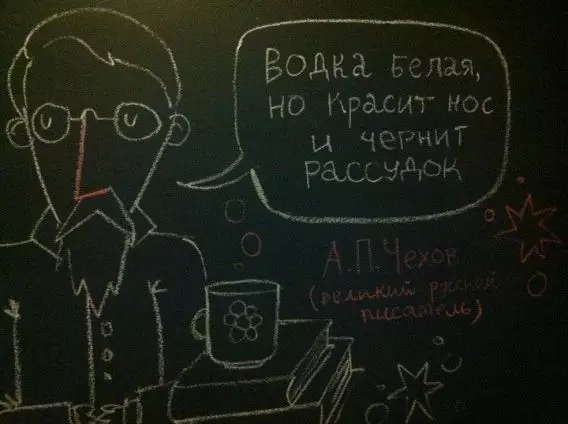 ВОДКА БЕЛАЯ,
НО КРАСИТ НОС
И ЧЕРНИТ
РАССУДОК
А.П. Чехов
(великий русский
писатель)